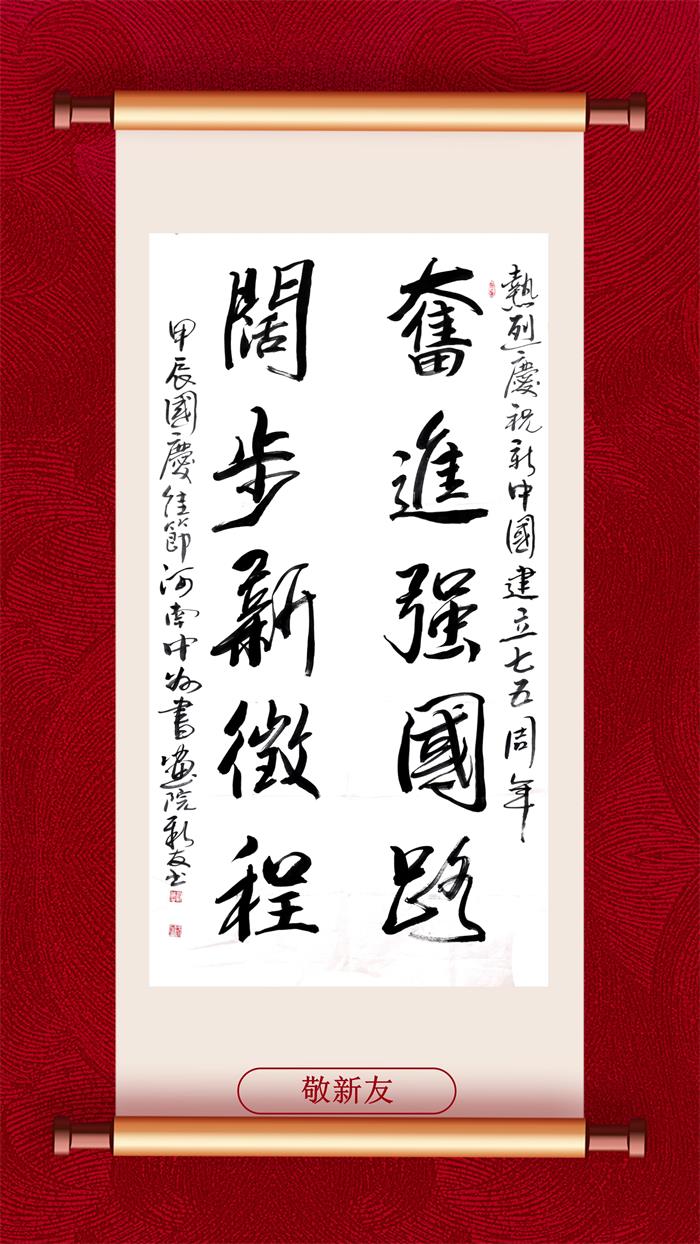 熱烈慶祝新中國建立七五周年
奮進强國路
闊步新徵程
甲辰國慶佳節河南中州書畫院新友书
敬新友